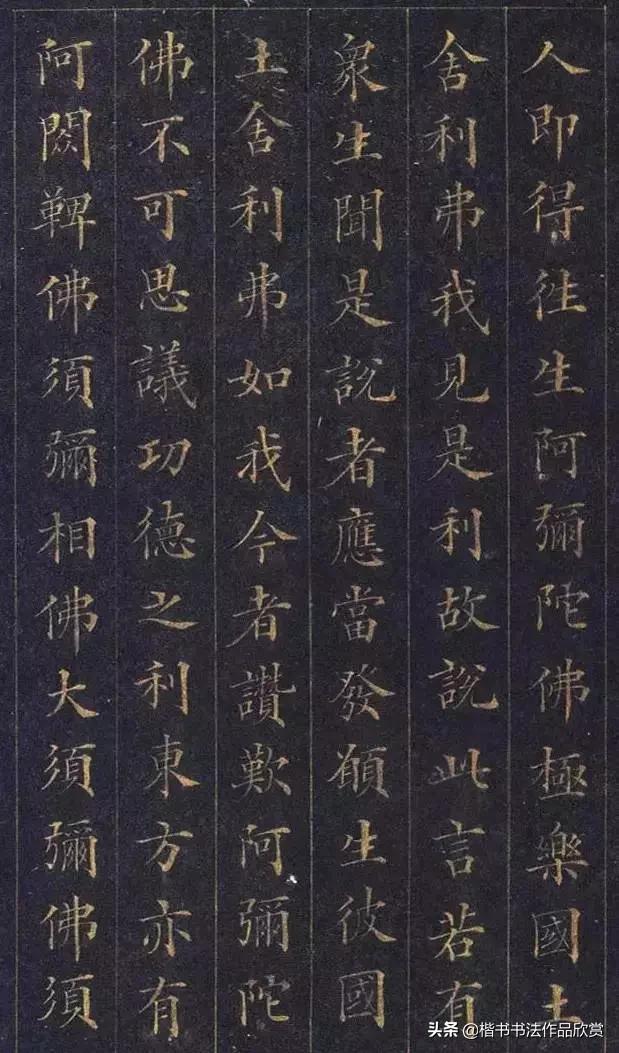 人即得徃生阿彌陀佛極樂國土
舍利弗我見是利故說此言若有
衆生聞是說者應當發願生彼國
土舍利弗如我今者讚歎阿彌陀
佛不可思議功德之利東方亦有
阿閦鞞佛須彌相佛大須彌佛須
头条 @楷书书法作品欣赏